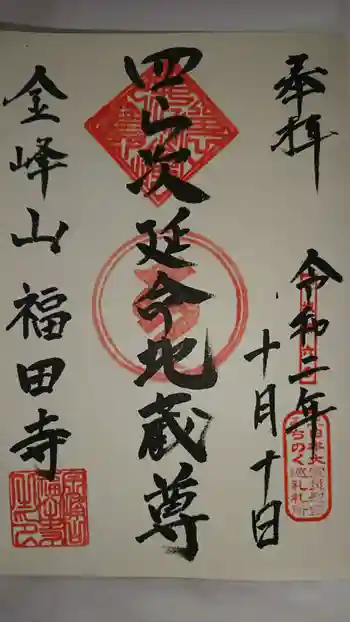 奉拝
令和二年
十月十日
四山次延命地蔵尊
金峰山 福田寺